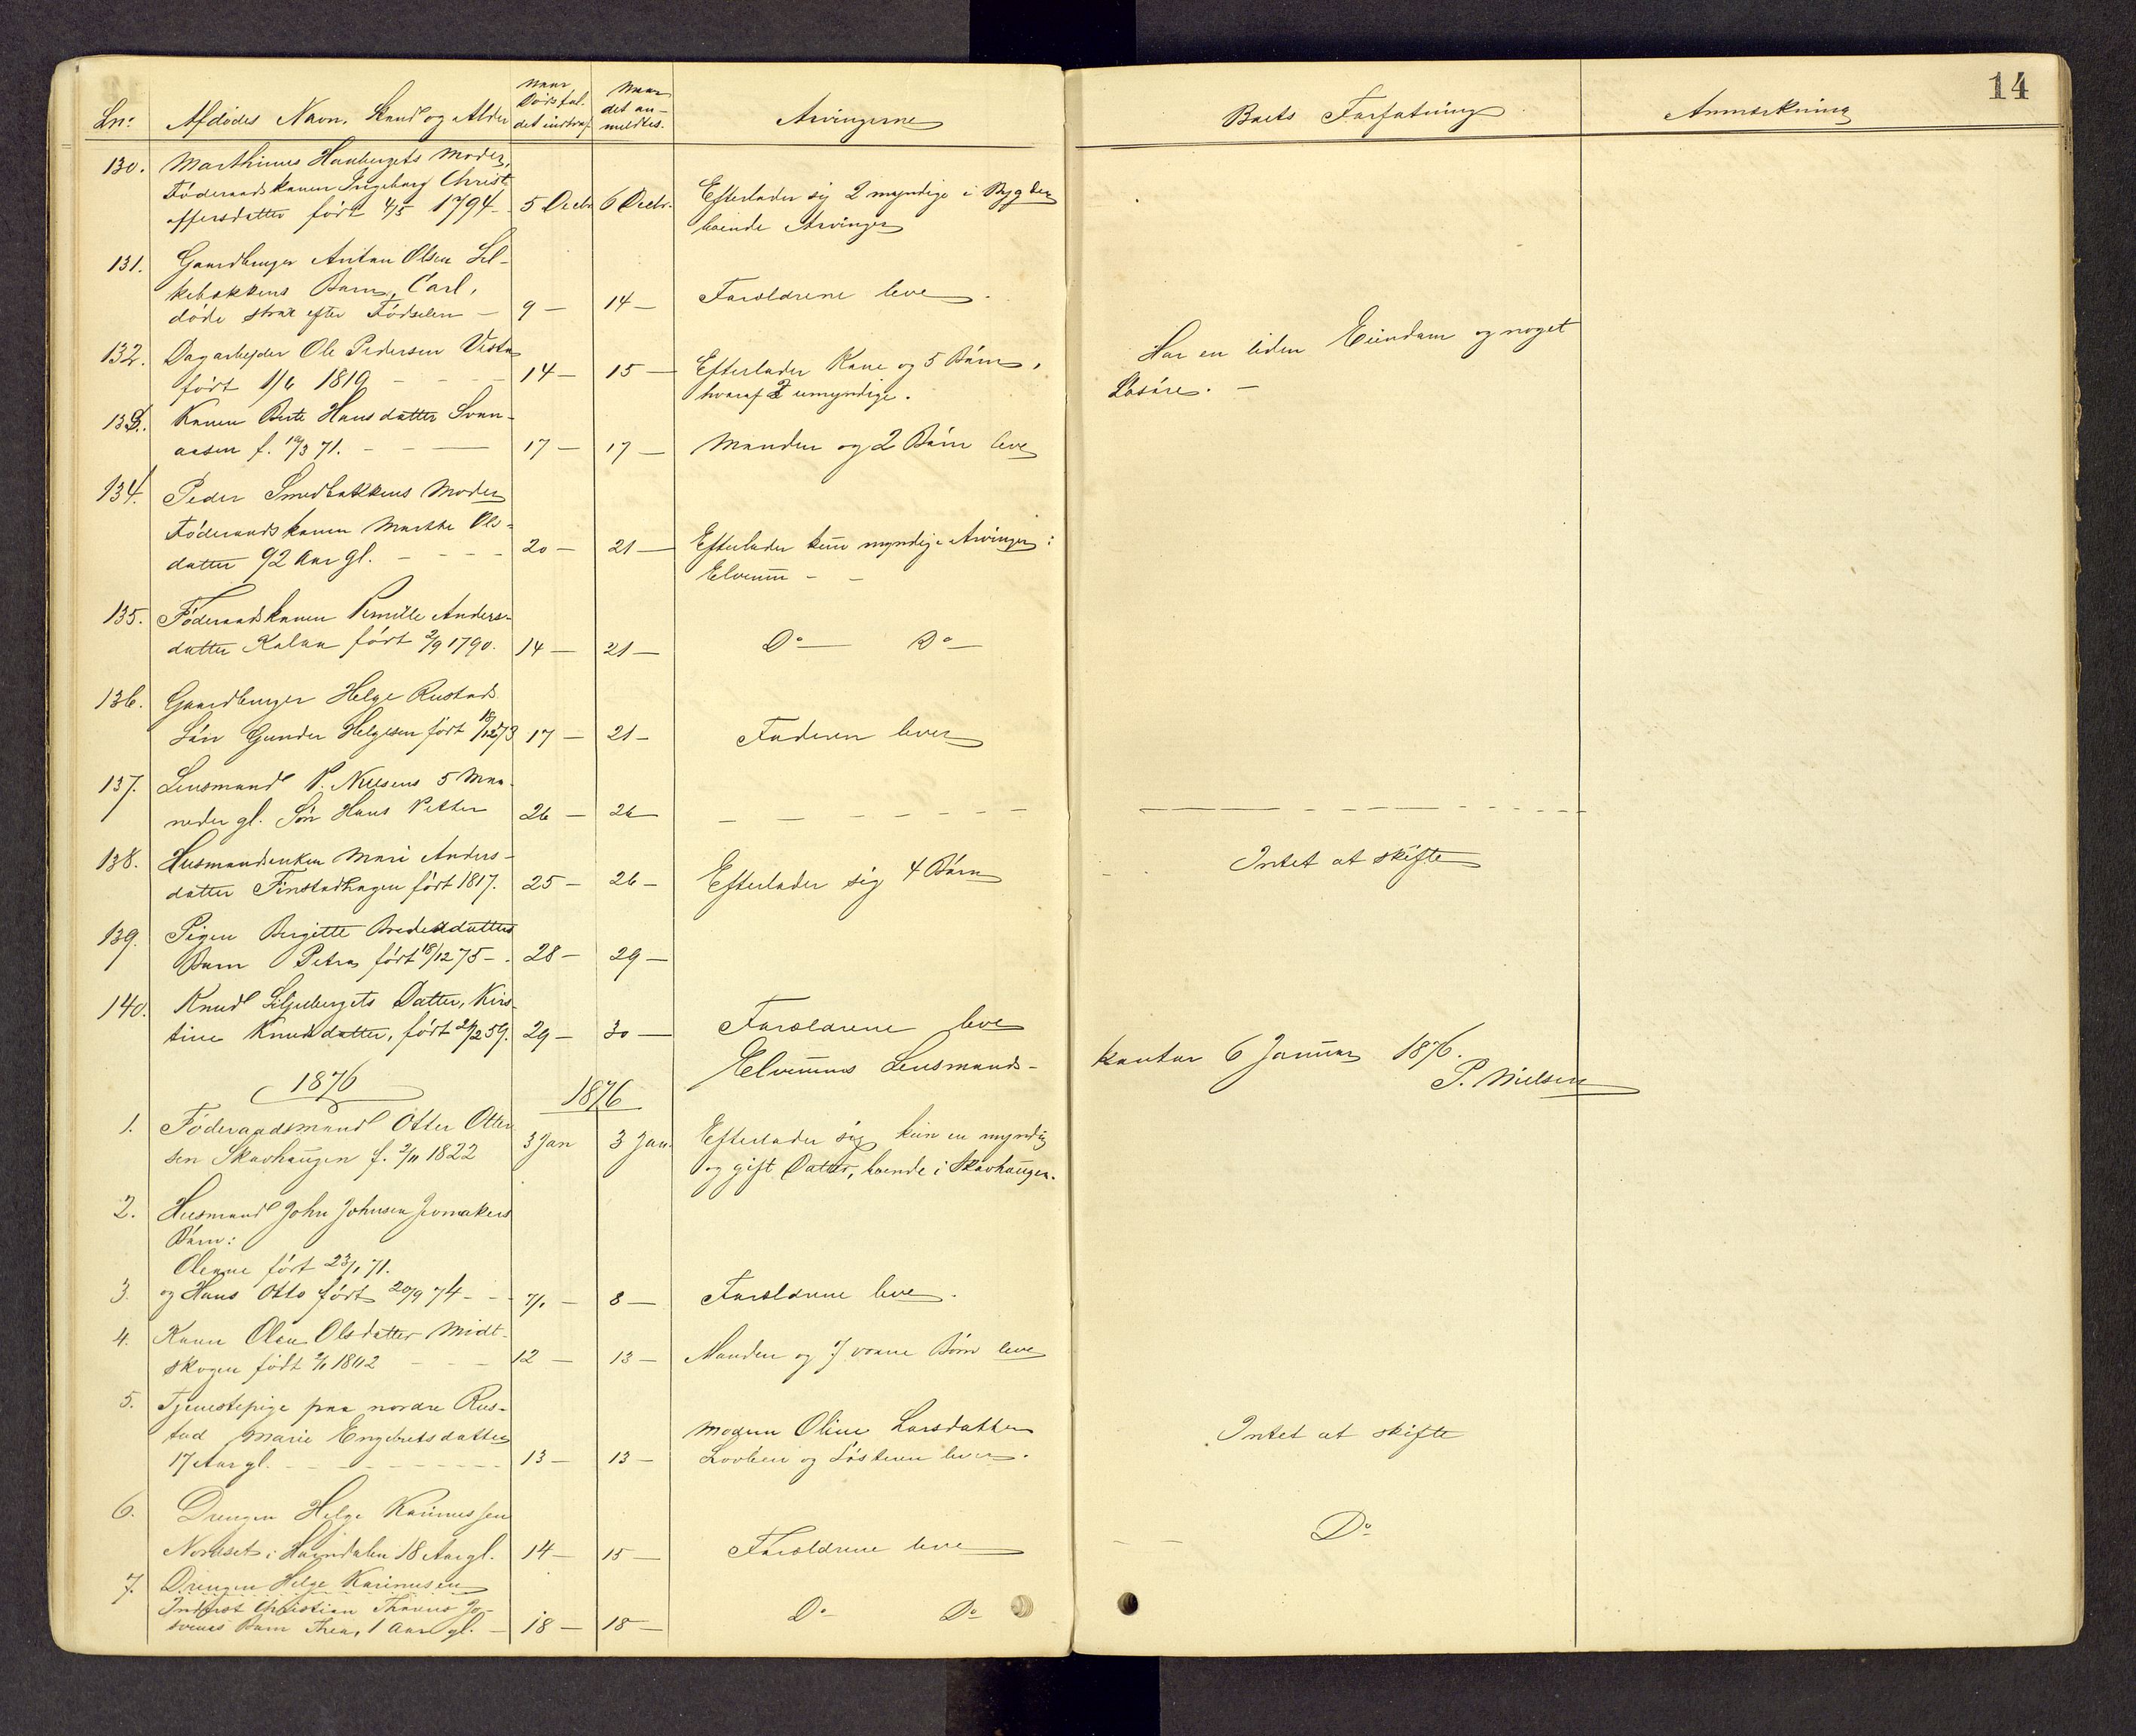 14
Lnr. Afdødes Navn, Stand og Alder Naar Dødsfaldet indtraf. Naar det anmeldtes. Arvingerne Boets Forfatning Anmærkning
130. Marthinus Haubergets Moder,
Føderaadskonen Ingeborg Christ-
offersdatter født 4/5 1794 - 5 Decbr. 6 Decbr. Efterlader sig 2 myndige i Bygden
boende Arvinger
131. Gaardbruger Anton Olsen Sel-
kebakkens Barn, Carl,
døde strax efter Fødselen - 9 - 14 - Forældrene leve.
132. Dagarbejder Ole Pedersen Vestad
født 1/6 1819 - - - 14 - 15 - Efterlader Kone og 5 Børn, Har en liden Eiendom og noget
hvoraf 2 umyndige. Løsøre. -
133. Konen Berte Hansdatter Svan-
aasen f. 19/3 71. - - - 17 - 17 - Manden og 2 Børn leve
134. Peder Smedbakkens Moder
Føderaadskonen Marthe Ols-
datter 92 Aar gl. - - - - 20 - 21 - Efterlader kun myndige Arvinger i
Elverum - -
135. Føderaadskonen Pernille Anders-
datter født 2/9 1790. 14 - 21 - Do - Do -
136. Gaardbruger Helge Rustads
Søn Gunder Helgesen født 18/12 73 17 - 21 - Faderen lever
137. Lensmand P. Nielsens 5 Maa-
neder gl. Søn Hans Petter 26 - 26 - - - - - - - -
138. Husmandsenken Mari Anders-
datter Finstadhagen født 1817. 25 - 26 - Efterlader sig 4 Børn Intet at skifte
139. Pigen Birgitte Bredesdatters
Barn Petra født 18/12 75 - 28 - 29 -
140. Knud Siljebergets Datter, Kirs-
tine Knudsdatter, født 21/2 59. 29 - 30 - Forældrene leve
Elverums Lensmands- kontor 6 Januar 1876.
P. Nielsen
1876 1876
1. Føderaadsmand Otter Otter-
sen Skavhaugen f. 2/11 1822 3 Jan 3 Jan. Efterlader sig kun en myndig
og gift Datter, boende i Skavhaugen.
2. Husmand John Johnsen
Børn:
Oleane født 23/1 71.
3. og Hans Otto født 20/9 74 - - 7/1 - 8 - Forældrene leve.
4. Konen Olea Olsdatter Midt-
skogen født 1802 - - - 12 - 13 - Manden og 7 voxne Børn leve
5. Tjenestepige paa nordre Rus-
tad Marie Engebretsdatter
17 Aar gl. - - - - - 13 - 13 - Moderen Oline Larsdatter
og Søsteren lever. Intet at skifte
6. Drengen Helge Karinussen
Nordset i Hørndalen 18 Aar gl. 14 - 15 - Forældrene leve Do
7. Drengen Helge Karinusen
Inderst Christian
Barn Thea, 1 Aar gl. - 18 - 18 - Do - Do -